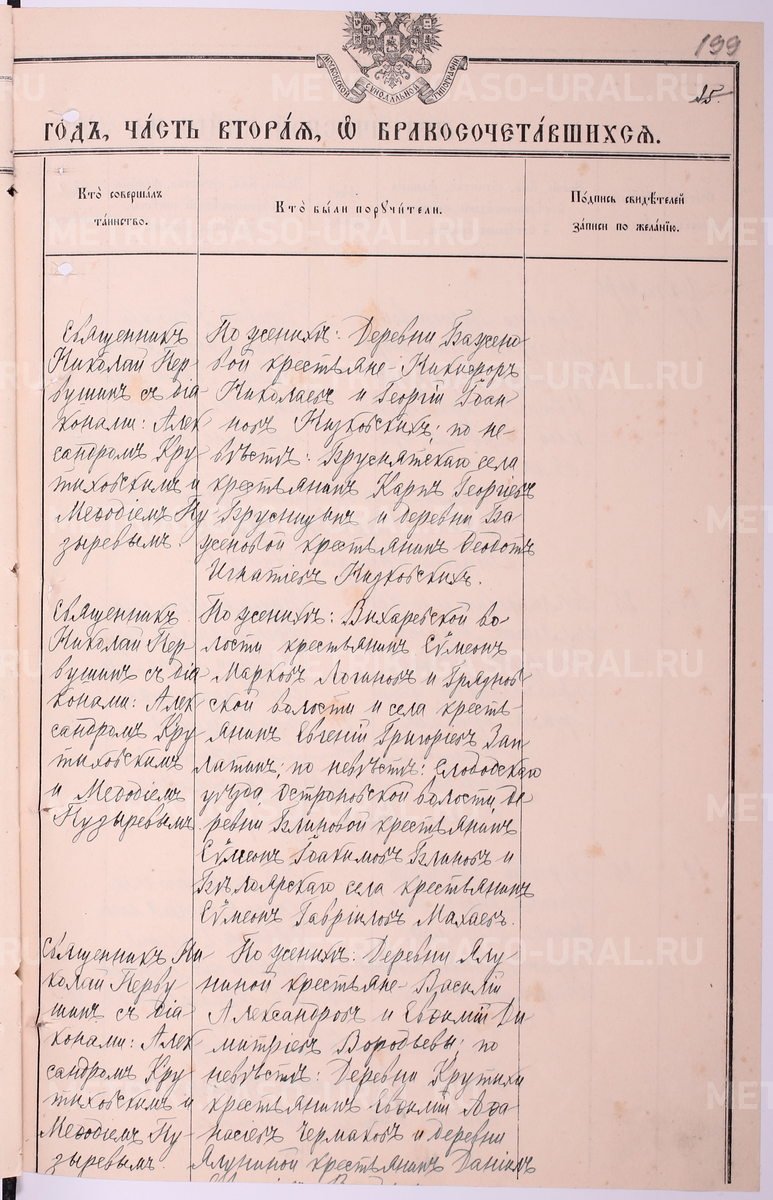 199
15.
МОСКОВСКОЙ СѴНОДАЛЬНОЙ ТИПОГРАФІИ
ГОДЪ, ЧАСТЬ ВТОРАЯ, Ѡ БРАКОСОЧЕТАВШИХСЯ.
Кто совершалъ
таинство.
Кто были поручители.
Подпись свидѣтелей
записи по желанію.
METRIKI.GASO-URAL.RU
Священникъ
Николай Пер
вушинъ съ діа
конами: Алек
сандромъ Кру
тиховскимъ и
Меѳодіемъ Пу
зыревымъ.
По женихѣ: Деревни Бажено
вой крестьяне Никифоръ
Николаевъ и Георгій Іоан
новъ Низковскихъ; по не
вѣстѣ: Бруснятскаго села
крестьянинъ Карпъ Георгіевъ
Брусницынъ и деревни Ба
женовой крестьянинъ Ѳеодотъ
Игнатіевъ Низковскихъ.
Священникъ
Николай Пер
вушинъ съ діа
конами: Алек
сандромъ Кру
тиховскимъ
и Меѳодіемъ
Пузыревымъ
По женихѣ: Вихаревской во
лости крестьянинъ Сѵмеонъ
Марковъ Логиновъ и Грязнов
ской волости и села кресть
янинъ Евгеній Григоріевъ Зап
латинъ; по невѣстѣ: Слободскаго
уѣзда, волости, де
ревни Блиновой крестьянинъ
Сѵмеонъ Іоакимовъ Блиновъ и
Бѣлоярскаго села крестьянинъ
Сѵмеонъ Гавріиловъ Махаевъ.
Священникъ Ни
колай Перву
шинъ съ діа
конами: Алек
сандромъ Кру
тиховскимъ и
Меѳодіемъ Пу
зыревымъ.
По женихѣ: Деревни Ялу
ниной крестьяне Василій
Александровъ и Евѳимій Ди
митріевъ Воробьевы; по
невѣстѣ: Деревни Крутихи
крестьянинъ Евѳимій Аѳа
насіевъ Чермаковъ и деревни
Ялуниной крестьянинъ Даніилъ